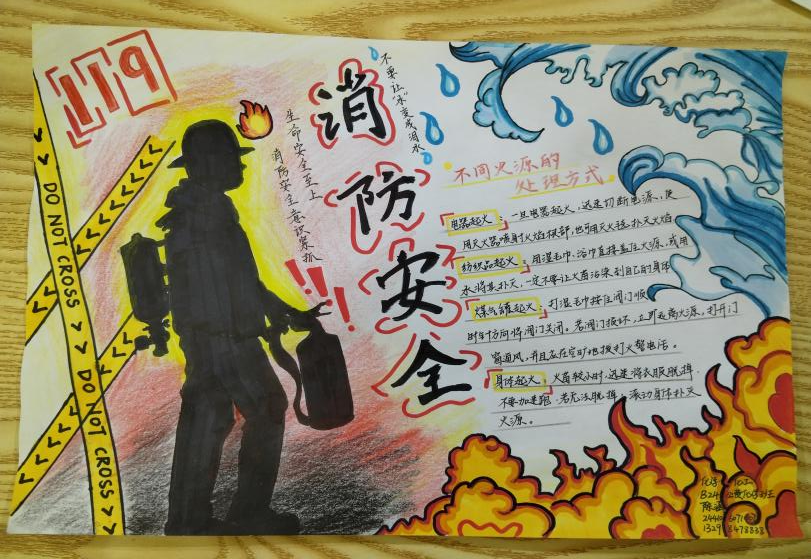 119
DO NOT CROSS
DO NOT CROSS
消防安全
不要让"水"变成泪水
生命安全至上
消防安全意识紧抓
!!!
不同火源的
处理方式
电器起火：一旦电器起火，迅速切断电源，使
用灭火器喷射火焰根部，也可用灭火毯扑灭火焰
纺织品起火：用湿毛巾、浴巾直接盖住火源，或用
水将其扑灭，一定不要让火苗沾染到自己的身体
煤气罐起火：打湿毛巾按住阀门顺
时针方向将阀门关闭。若阀门损坏，立即远离火源，打开门
窗通风，并且在空旷地拨打火警电话。
身体起火：火苗较小时，迅速将衣服脱掉，
不要加速跑，若无法脱掉，滚动身体扑灭
火源。